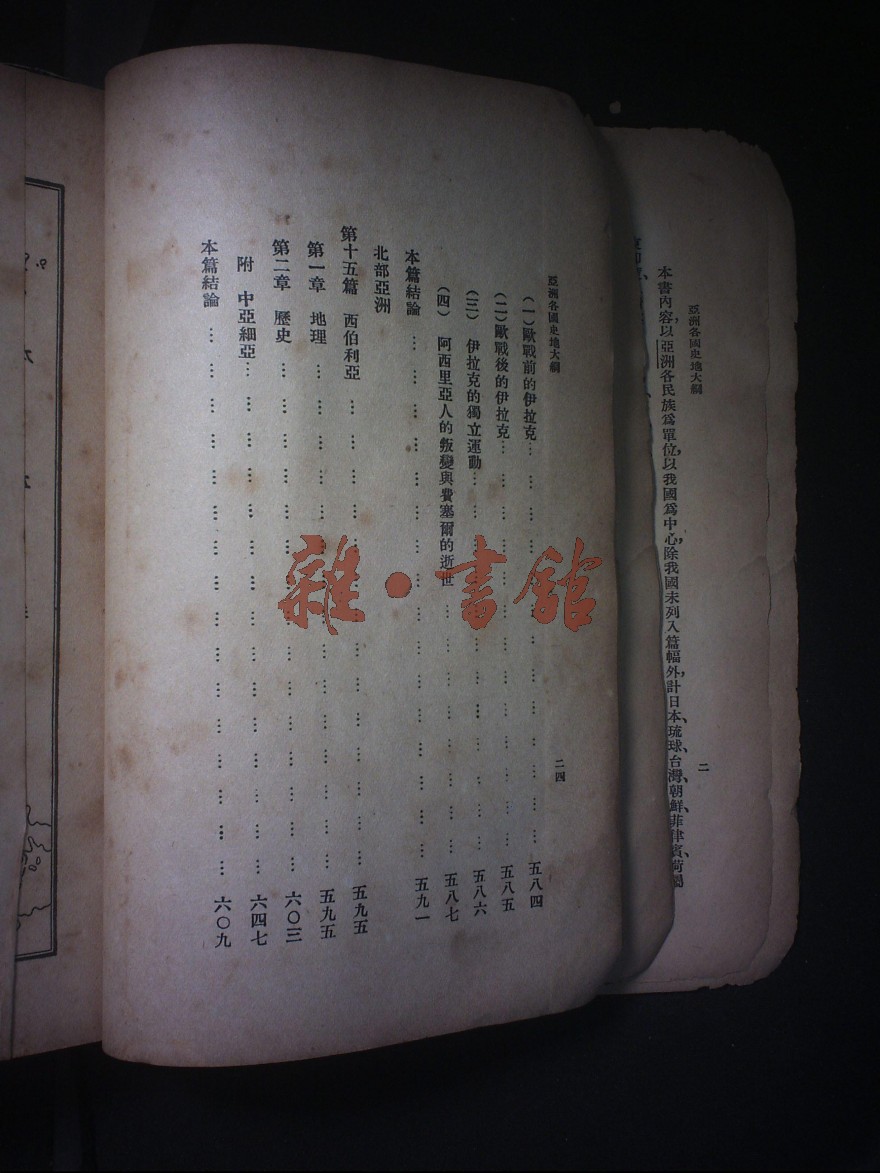 亞洲各國史地大綱
二
本書內容，以亞洲各民族爲單位，以我國爲中心，除我國未列入篇幅外，計日本、琉球、台灣、朝鮮、菲律賓、荷屬
亞洲各國史地大綱
二四
（一）歐戰前的伊拉克… … … … … … … … … … … 五八四
（二）歐戰後的伊拉克… … … … … … … … … … … 五八五
（三）伊拉克的獨立運動… … … … … … … … … … 五八六
（四）阿西里亞人的叛變與費塞爾的逝世… … … … … … 五八七
本篇結論 … … … … … … … … … … … … … … 五九一
北部亞洲
第十五篇 西伯利亞 … … … … … … … … … … … … 五九五
第一章 地理 … … … … … … … … … … … … … 五九五
第二章 歷史 … … … … … … … … … … … … … 六〇三
附 中亞細亞… … … … … … … … … … … … … 六四七
本篇結論 … … … … … … … … … … … … … … 六〇九
雜·書館